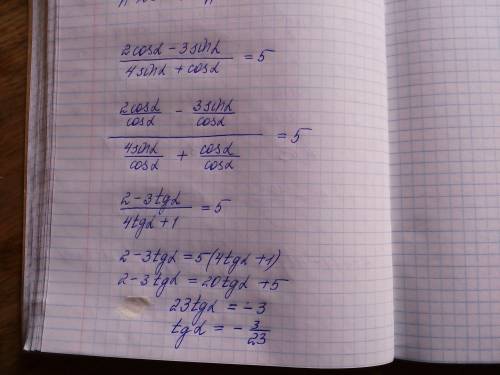 (2cosα − 3sinα)/(4sinα + cosα) = 5
(2cosα/cosα − 3sinα/cosα)/(4sinα/cosα + cosα/cosα) = 5
(2 − 3tgα)/(4tgα + 1) = 5
2 − 3tgα = 5(4tgα + 1)
2 − 3tgα = 20tgα + 5
23tgα = −3
tgα = − 3/23